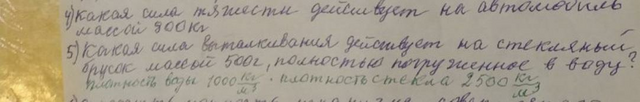 4) Какая сила тяжести действует на автомобиль
массой 900кг
5) Какая сила выталкивания действует на стекляный
брусок массой 500г, полностью погруженное в воду?
плотность воды 1000 кг/м3 . плотность стекла 2500 кг/м3